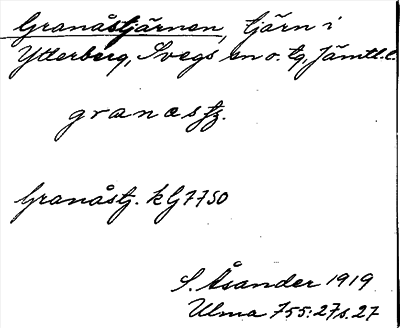 Granåstjärnen, tjärn i
Ytterberg, Svegs sn o. tg, Jämtl. l.
granæstz.
Granåstj. k G7750
S. Åsander 1919
Ulma 755:27 s. 27